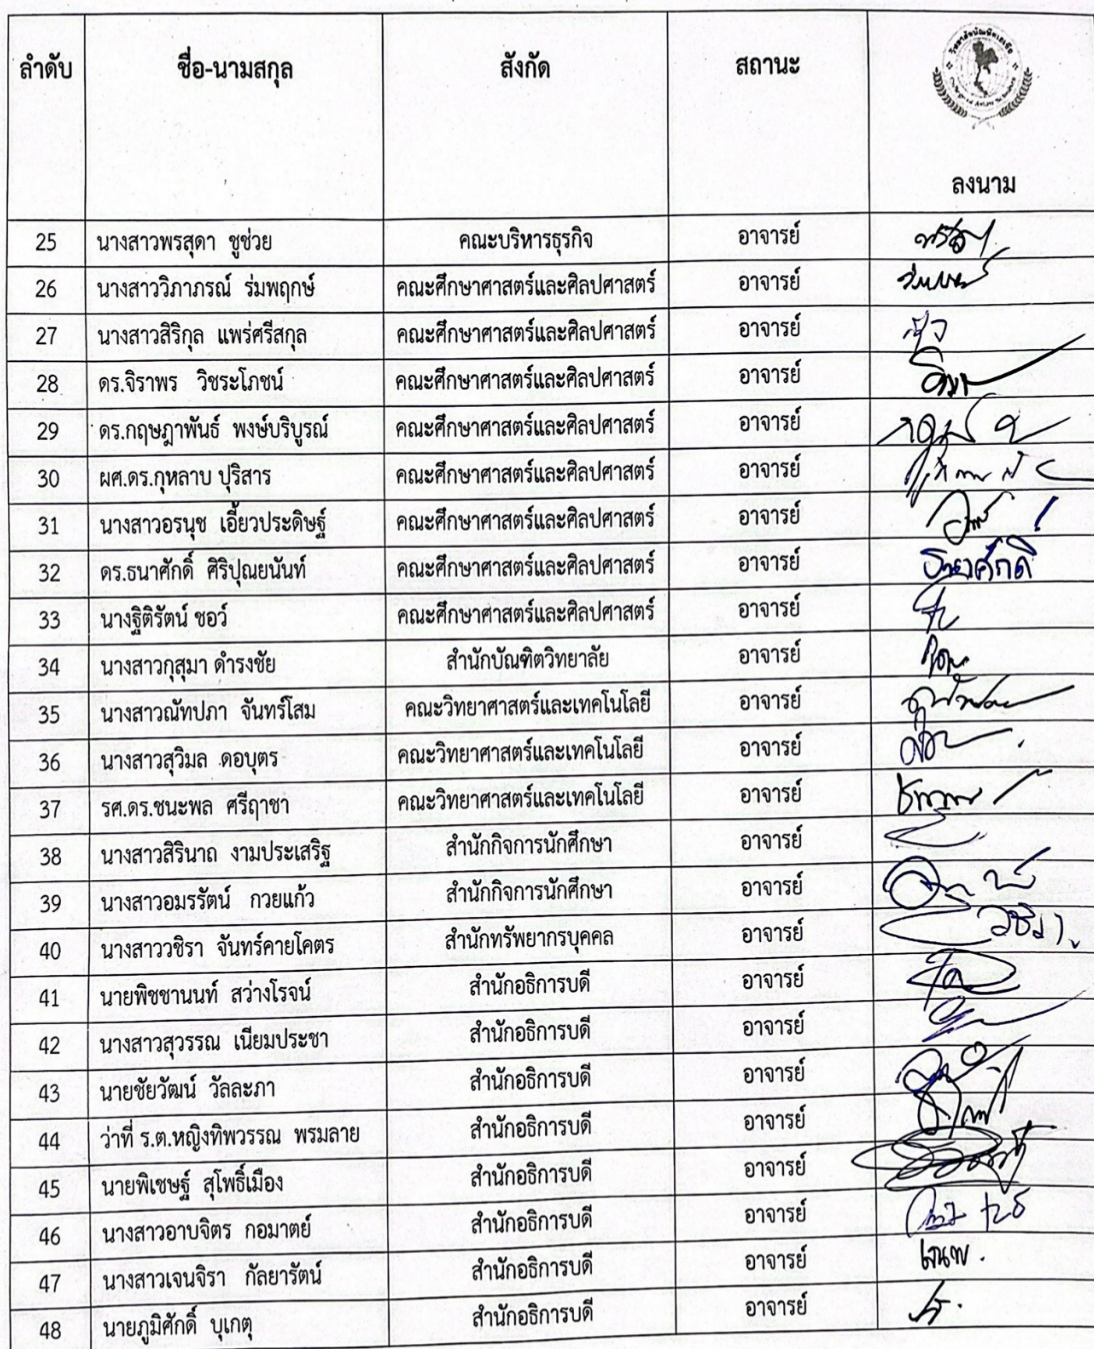 ลำดับ ชื่อ-นามสกุล สังกัด สถานะ
ลงนาม
25 นางสาวพรสุดา ชูช่วย คณะบริหารธุรกิจ อาจารย์
26 นางสาววิภาภรณ์ ร่มพฤกษ์ คณะศึกษาศาสตร์และศิลปศาสตร์ อาจารย์
27 นางสาวสิริกุล แพร่ศรีสกุล คณะศึกษาศาสตร์และศิลปศาสตร์ อาจารย์
28 ดร.จิราพร วิชระโภชน์ คณะศึกษาศาสตร์และศิลปศาสตร์ อาจารย์
29 ดร.กฤษฎาพันธ์ พงษ์บริบูรณ์ คณะศึกษาศาสตร์และศิลปศาสตร์ อาจารย์
30 ผศ.ดร.กุหลาบ ปุริสาร คณะศึกษาศาสตร์และศิลปศาสตร์ อาจารย์
31 นางสาวอรนุช เอี้ยวประดิษฐ์ คณะศึกษาศาสตร์และศิลปศาสตร์ อาจารย์
32 ดร.ธนาศักดิ์ ศิริปุณยนันท์ คณะศึกษาศาสตร์และศิลปศาสตร์ อาจารย์
33 นางฐิติรัตน์ ชอว์ คณะศึกษาศาสตร์และศิลปศาสตร์ อาจารย์
34 นางสาวกุสุมา ดำรงชัย สำนักบัณฑิตวิทยาลัย อาจารย์
35 นางสาวณัทปภา จันทร์โสม คณะวิทยาศาสตร์และเทคโนโลยี อาจารย์
36 นางสาวสุวิมล ดอบุตร คณะวิทยาศาสตร์และเทคโนโลยี อาจารย์
37 รศ.ดร.ชนะพล ศรีฤาชา คณะวิทยาศาสตร์และเทคโนโลยี อาจารย์
38 นางสาวสิรินาถ งามประเสริฐ สำนักกิจการนักศึกษา อาจารย์
39 นางสาวอมรรัตน์ กวยแก้ว สำนักกิจการนักศึกษา อาจารย์
40 นางสาววชิรา จันทร์คายโคตร สำนักทรัพยากรบุคคล อาจารย์
41 นายพิชชานนท์ สว่างโรจน์ สำนักอธิการบดี อาจารย์
42 นางสาวสุวรรณ เนียมประชา สำนักอธิการบดี อาจารย์
43 นายชัยวัฒน์ วัลละภา สำนักอธิการบดี อาจารย์
44 ว่าที่ ร.ต.หญิงทิพวรรณ พรมลาย สำนักอธิการบดี อาจารย์
45 นายพิเชษฐ์ สุโพธิ์เมือง สำนักอธิการบดี อาจารย์
46 นางสาวอาบจิตร กอมาตย์ สำนักอธิการบดี อาจารย์
47 นางสาวเจนจิรา กัลยารัตน์ สำนักอธิการบดี อาจารย์
48 นายภูมิศักดิ์ บุเกตุ สำนักอธิการบดี อาจารย์